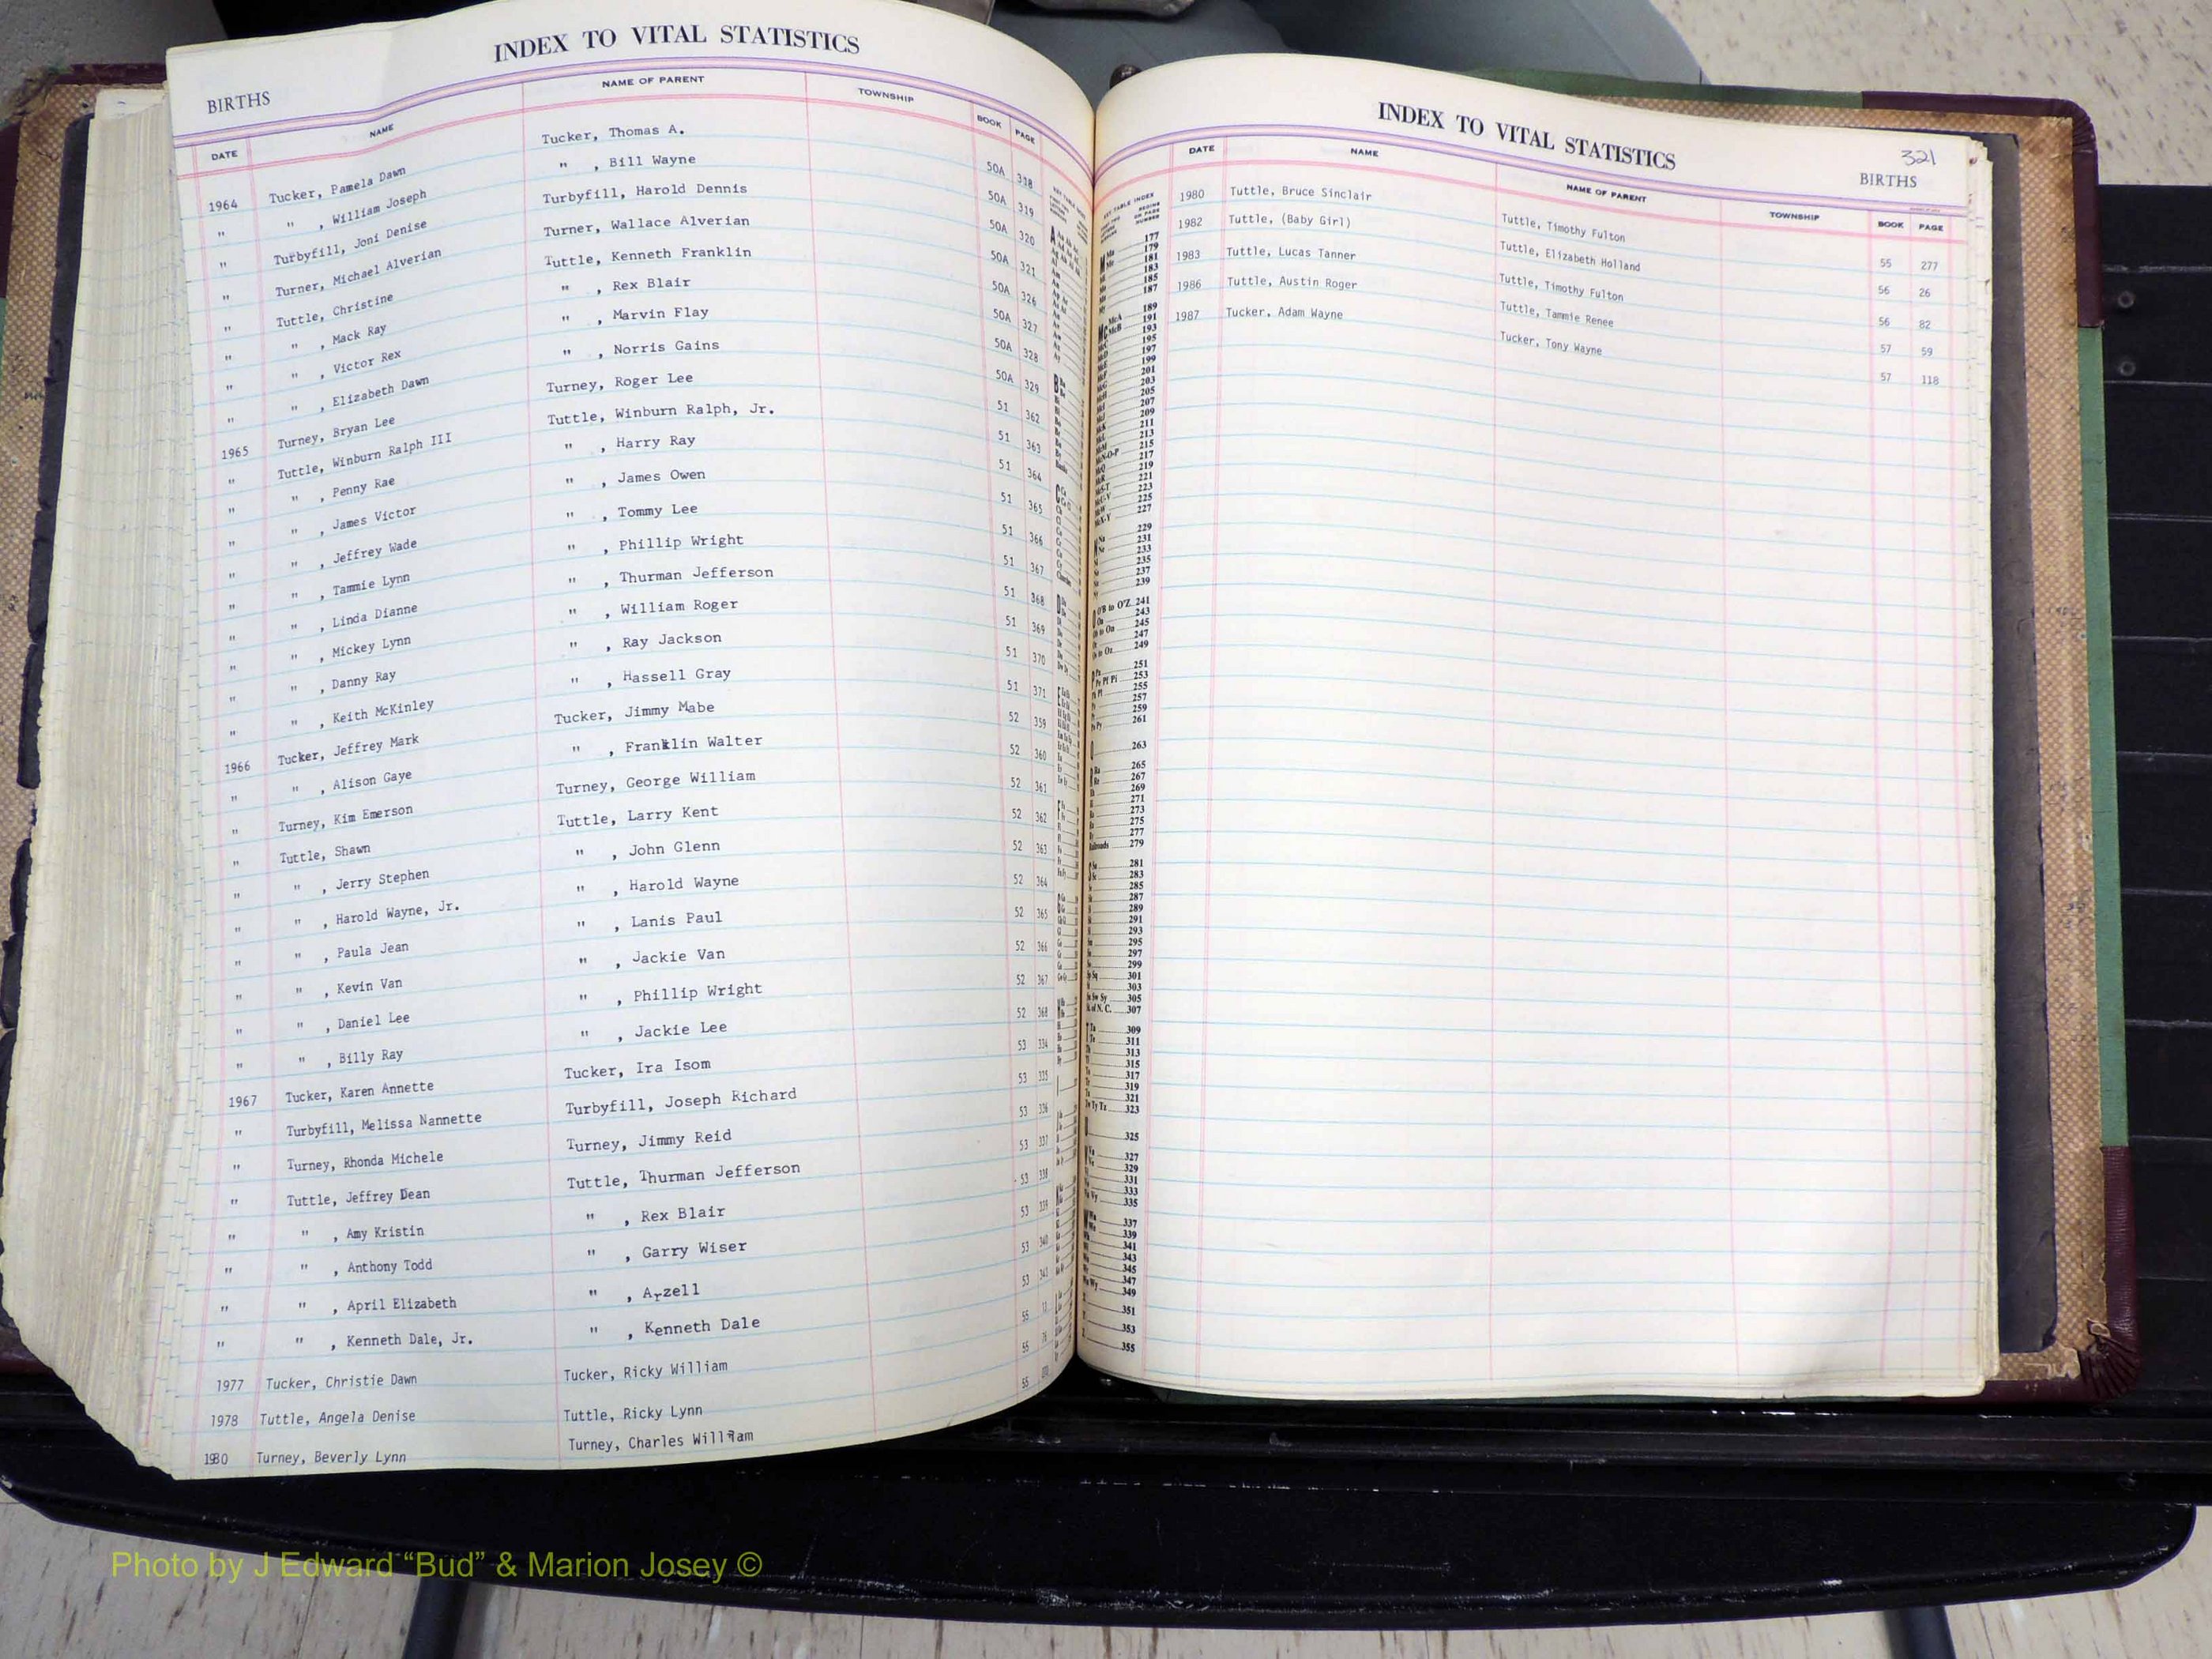 INDEX TO VITAL STATISTICS
BIRTHS
DATE NAME NAME OF PARENT TOWNSHIP BOOK PAGE
1964 Tucker, Pamela Dawn Tucker, Thomas A. 50A 318
" " , William Joseph " , Bill Wayne 50A 319
" Turbyfill, Joni Denise Turbyfill, Harold Dennis 50A 320
" Turner, Michael Alverian Turner, Wallace Alverian 50A 321
" Tuttle, Christine Tuttle, Kenneth Franklin 50A 326
" " , Mack Ray " , Rex Blair 50A 327
" " , Victor Rex " , Marvin Flay 50A 328
" " , Elizabeth Dawn " , Norris Gains 50A 329
1965 Turney, Bryan Lee Turney, Roger Lee 51 362
" Tuttle, Winburn Ralph III Tuttle, Winburn Ralph, Jr. 51 363
" " , Penny Rae " , Harry Ray 51 364
" " , James Victor " , James Owen 51 365
" " , Jeffrey Wade " , Tommy Lee 51 366
" " , Tammie Lynn " , Phillip Wright 51 367
" " , Linda Dianne " , Thurman Jefferson 51 368
" " , Mickey Lynn " , William Roger 51 369
" " , Danny Ray " , Ray Jackson 51 370
" " , Keith McKinley " , Hassell Gray 51 371
1966 Tucker, Jeffrey Mark Tucker, Jimmy Mabe 52 359
" " , Alison Gaye " , Franklin Walter 52 360
" Turney, Kim Emerson Turney, George William 52 361
" Tuttle, Shawn Tuttle, Larry Kent 52 362
" " , Jerry Stephen " , John Glenn 52 363
" " , Harold Wayne, Jr. " , Harold Wayne 52 364
" " , Paula Jean " , Lanis Paul 52 365
" " , Kevin Van " , Jackie Van 52 366
" " , Daniel Lee " , Phillip Wright 52 367
" " , Billy Ray " , Jackie Lee 52 368
1967 Tucker, Karen Annette Tucker, Ira Isom 53 334
" Turbyfill, Melissa Nannette Turbyfill, Joseph Richard 53 335
" Turney, Rhonda Michele Turney, Jimmy Reid 53 336
" Tuttle, Jeffrey Dean Tuttle, Thurman Jefferson 53 337
" " , Amy Kristin " , Rex Blair 53 338
" " , Anthony Todd " , Garry Wiser 53 339
" " , April Elizabeth " , Arzell 53 340
" " , Kenneth Dale, Jr. " , Kenneth Dale 53 341
1977 Tucker, Christie Dawn Tucker, Ricky William 55
1978 Tuttle, Angela Denise Tuttle, Ricky Lynn 55
1980 Turney, Beverly Lynn Turney, Charles William 55
INDEX TO VITAL STATISTICS
321
BIRTHS
DATE NAME NAME OF PARENT TOWNSHIP BOOK PAGE
1980 Tuttle, Bruce Sinclair Tuttle, Timothy Fulton 55 277
1982 Tuttle, (Baby Girl) Tuttle, Elizabeth Holland 56 26
1983 Tuttle, Lucas Tanner Tuttle, Timothy Fulton 56 82
1986 Tuttle, Austin Roger Tuttle, Tammie Renee 57 59
1987 Tucker, Adam Wayne Tucker, Tony Wayne 57 118
177
179
181
183
185
187
189
191
193
195
197
199
201
203
205
207
209
211
213
215
217
219
221
223
225
227
229
231
233
235
237
239
O'B to O'Z 241
243
245
247
249
251
253
255
257
259
261
263
265
267
269
271
273
275
277
279
281
283
285
287
289
291
293
295
297
299
301
303
305
307
309
311
313
315
317
319
321
323
325
327
329
331
333
335
337
339
341
343
345
347
349
351
353
355
Photo by J Edward “Bud” & Marion Josey ©